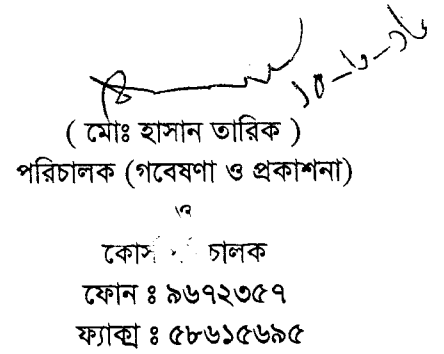 ১০-৮-১৬
( মোঃ হাসান তারিক )
পরিচালক (গবেষণা ও প্রকাশনা)
ও
চালক
ফোন ঃ ৯৬৭২৩৫৭
ফ্যাক্স ঃ ৫৮৬১৫৬৯৫